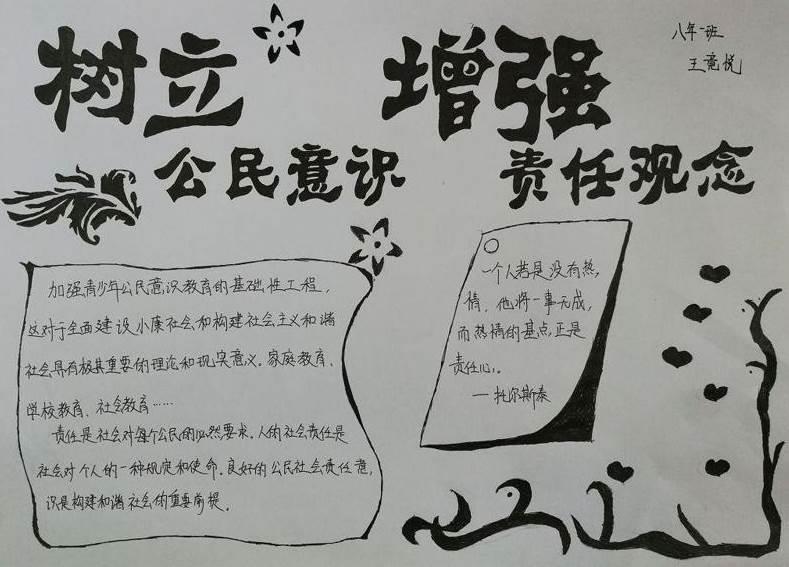 树立 增强
八年一班
王竞悦
公民意识 责任观念
加强青少年公民意识教育的基础性工程，
这对于全面建设小康社会和构建社会主义和谐
社会具有极其重要的理论和现实意义。家庭教育、
学校教育、社会教育……
责任是社会对每个公民的必然要求。人的社会责任是
社会对个人的一种规定和使命。良好的公民社会责任意，
识是构建和谐社会的重要前提。
一个人若是没有热，
情，他将一事无成，
而热情的基点正是
责任心。
—托尔斯泰